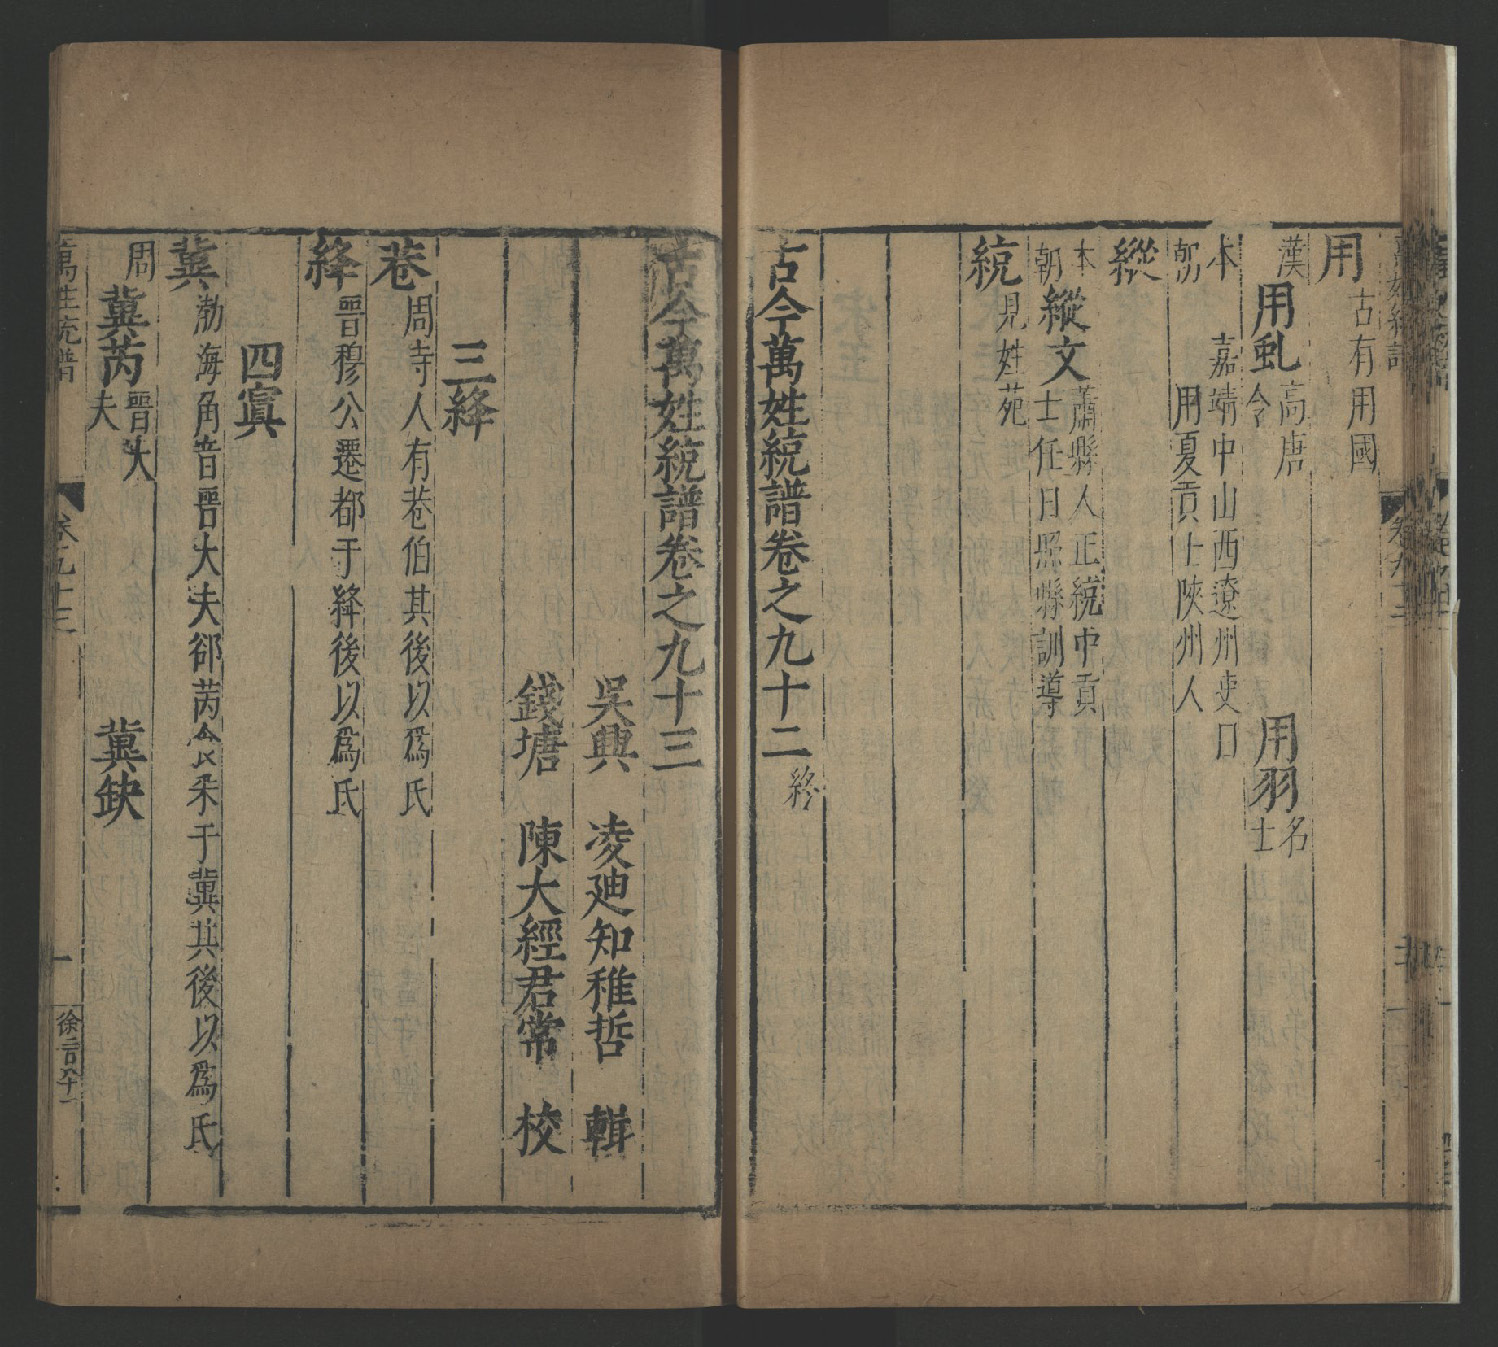 用 古有用國
漢 用虬 高唐令 用羽 名士
本朝 嘉靖中山西遼州吏目 用夏 貢士陝州人
縱
本朝 縱文 蕭縣人正統中貢士任日照縣訓導
統 見姓苑
古今萬姓統譜卷之九十二 終
古今萬姓統譜卷之九十三
吳興 凌迪知稚哲 輯
錢塘 陳大經君常 校
三絳
巷 周寺人有巷伯其後以爲氏
絳 晉穆公遷都于絳後以爲氏
四寘
冀 渤海角音晉大夫郤芮食采于冀其後以爲氏
周 冀芮 晉大夫 冀缺
萬姓統譜 卷九十三 一